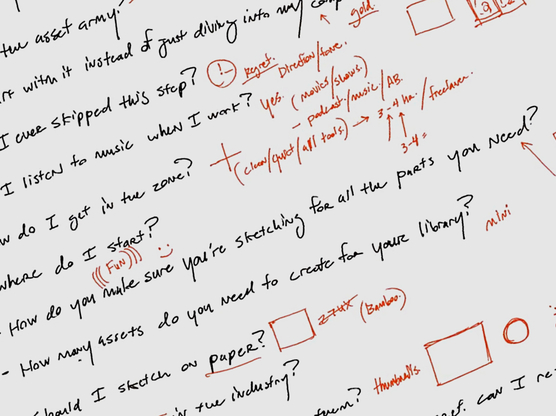 the asset army?
with it instead of just diving into my
gold.
I ever skipped this step? regret. Direction/tone.
I listen to music when I work? yes. (movies/shows)
- podcast/music/AB.
do I get in the zone? (clean/quiet/all tools.) → 3-4 hr. / freelancer.
3-4 =
where do I start?
(((FUN)))
- How do you make sure you're sketching for all the parts you need?
- How many assets do you need to create for your library? mini
should I sketch on paper? (Bamboo.)
in the industry?
them? thumbnails
can I